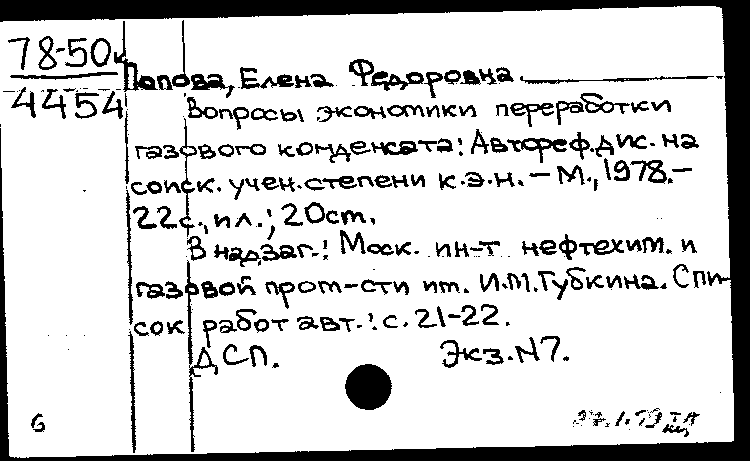 78-50к
4454
Попова, Елена Федоровна.
Вопросы экономики переработки
газового конденсата: Автореф. дис. на
соиск. учен. степени к.э.н. - М., 1978.-
22с., ил.; 20ст.
В надзаг.: Моск. ин-т нефтехим. и
газовой пром-сти им. И.М.Губкина. Спи-
сок работ авт.: с. 21-22.
ДСП. Экз. N7.
6